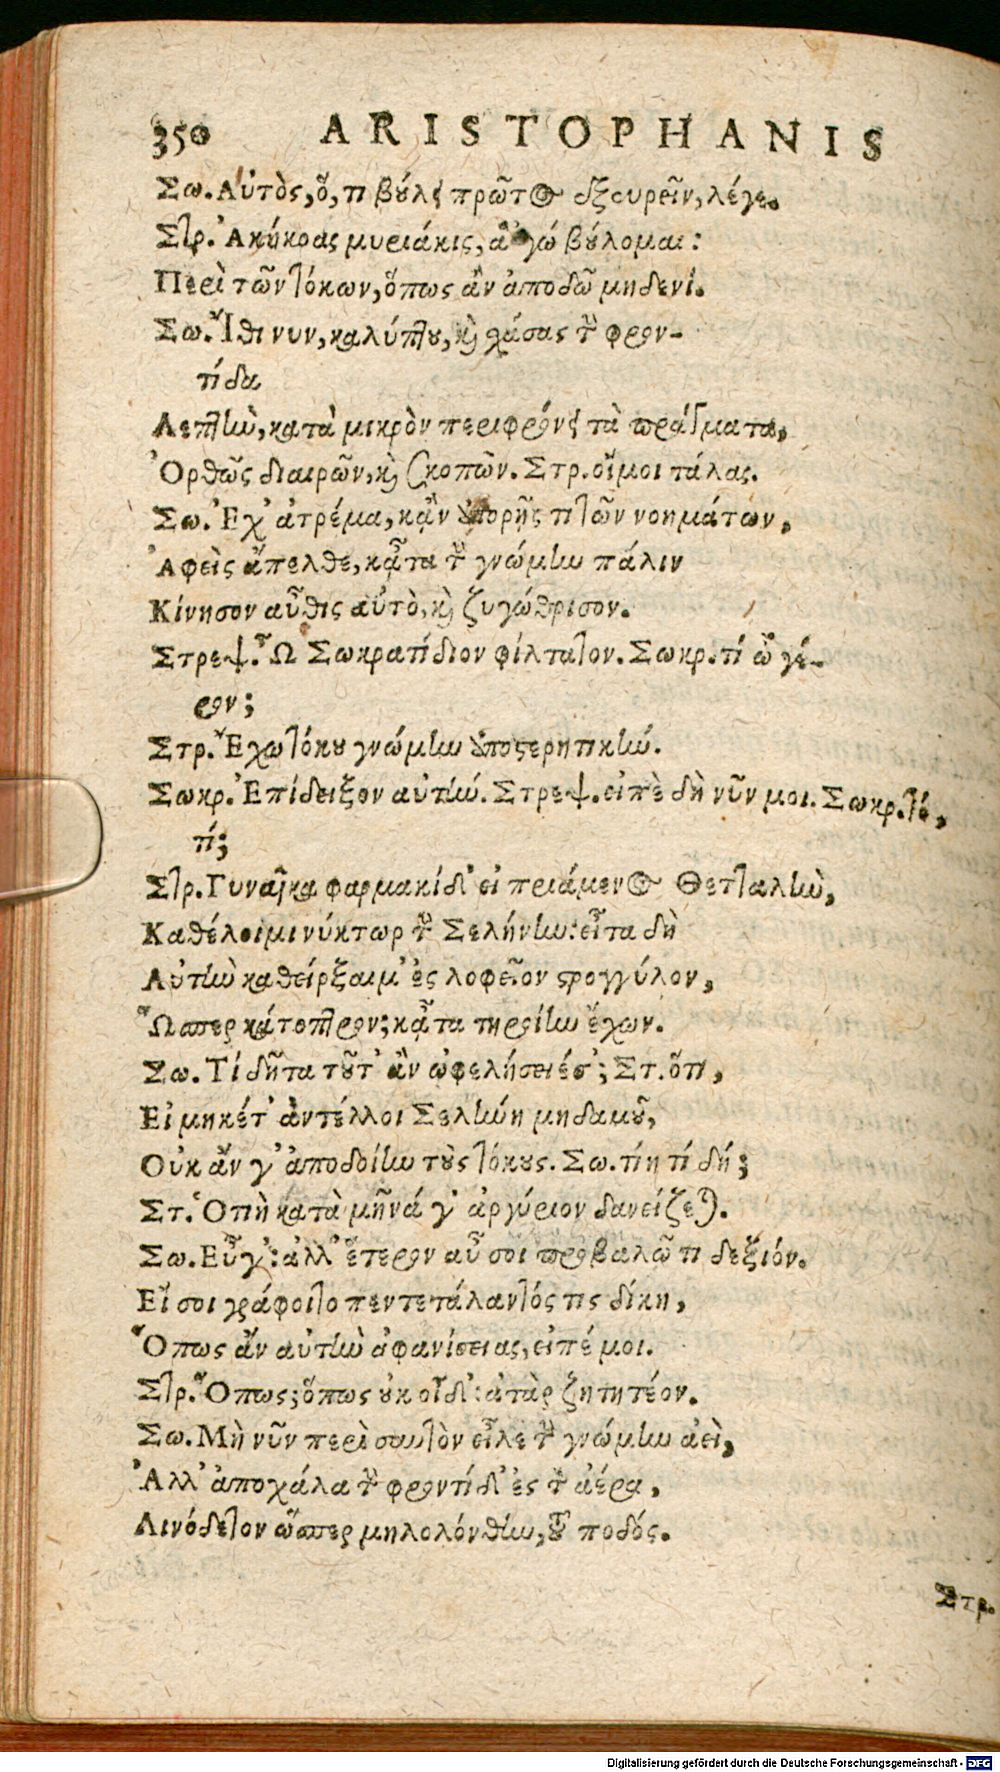 350 ARISTOPHANIS
Σω. Αὐτὸς, ὅ, τι βούλει πρῶτος ἐξευρεῖν, λέγε.
Στρ. Ἀκήκοας μυριάκις, ἃ 'γώ βούλομαι:
Περὶ τῶν τόκων, ὅπως ἂν ἀποδῶ μηδενί.
Σω. Ἴθι νυν, καλύπτου, καὶ σχάσας τὴν φρον-
τίδα
Λεπτὴν, κατὰ μικρὸν περιφρόνει τὰ πράγματα,
Ὀρθῶς διαιρῶν, καὶ σκοπῶν. Στρ. οἴμοι τάλας.
Σω. Ἔχ' ἀτρέμα, κἂν ἀπορῇς τι τῶν νοημάτων,
Ἀφεὶς ἄπελθε, κᾆτα τὴν γνώμην πάλιν
Κίνησον αὖθις αὐτὸ, καὶ ζυγώθρισον.
Στρεψ. Ὦ Σωκρατίδιον φίλτατον. Σωκρ. τί ὦ γέ-
ρον;
Στρ. Ἔχω τόκου γνώμην ἀποστερητικήν.
Σωκρ. Ἐπίδειξον αὐτήν. Στρεψ. εἰπὲ δὴ νῦν μοι. Σωκρ. τό,
τί;
Στρ. Γυναῖκα φαρμακίδ' εἰ πριάμενος Θετταλὴν,
Καθέλοιμι νύκτωρ τὴν Σελήνην: εἶτα δὴ
Αὐτὴν καθείρξαιμ' ἐς λοφεῖον στρογγύλον,
Ὥσπερ κάτοπτρον; κᾆτα τηροίην ἔχων.
Σω. Τί δῆτα τοῦτ' ἂν ὠφελήσειέ σ'; Στ. ὅτι,
Εἰ μηκέτ' ἀντέλλοι Σελήνη μηδαμοῦ,
Οὐκ ἄν γ' ἀποδοίην τοὺς τόκους. Σω. τίη τί δή;
Στ. Ὁτιὴ κατὰ μῆνά γ' ἀργύριον δανείζεται.
Σω. Εὖγ': ἀλλ' ἕτερον αὖ σοι προβαλῶ τι δεξιόν.
Εἴ σοι γράφοιτο πεντετάλαντός τις δίκη,
Ὅπως ἂν αὐτὴν ἀφανίσειας, εἰπέ μοι.
Στρ. Ὅπως; ὅπως οὐκ οἶδ': ἀτὰρ ζητητέον.
Σω. Μὴ νῦν περὶ σαυτὸν εἶλε τὴν γνώμην ἀεὶ,
Ἀλλ' ἀποχάλα τὴν φροντίδ' ἐς τὸν ἀέρα,
Λινόδετον ὥσπερ μηλολόνθην, τοῦ ποδός.
Στρ.
Digitalisierung gefördert durch die Deutsche Forschungsgemeinschaft - DFG